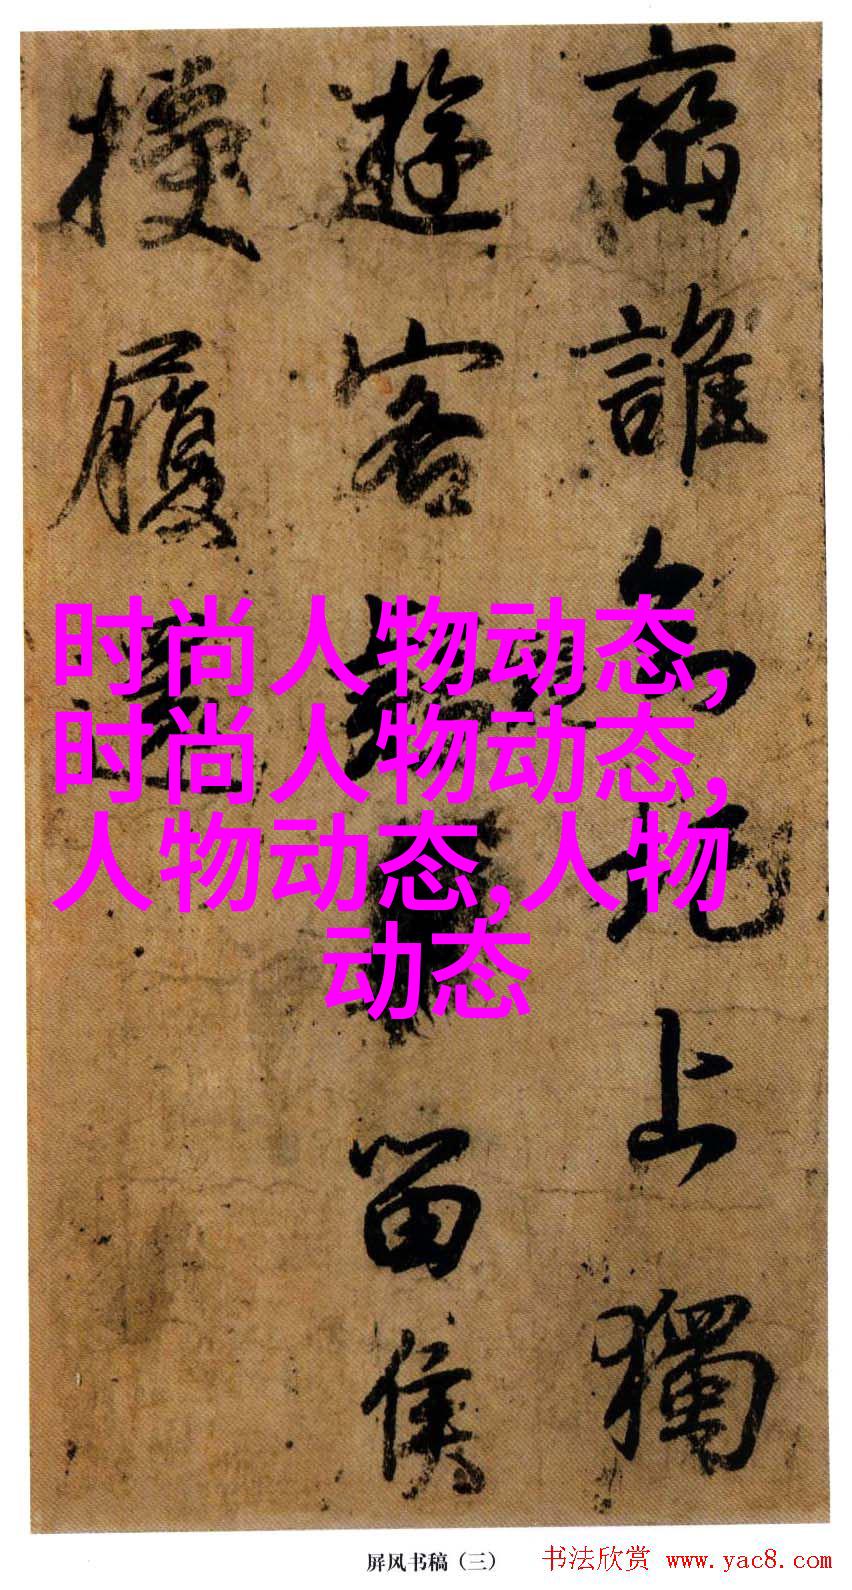 峦誰為圯上獨
遊客留侯
履還
时尚人物动态,
时尚人物动态,
人物动态,人物
动态
屏风书稿（三）
书法欣赏 www.yac8.com